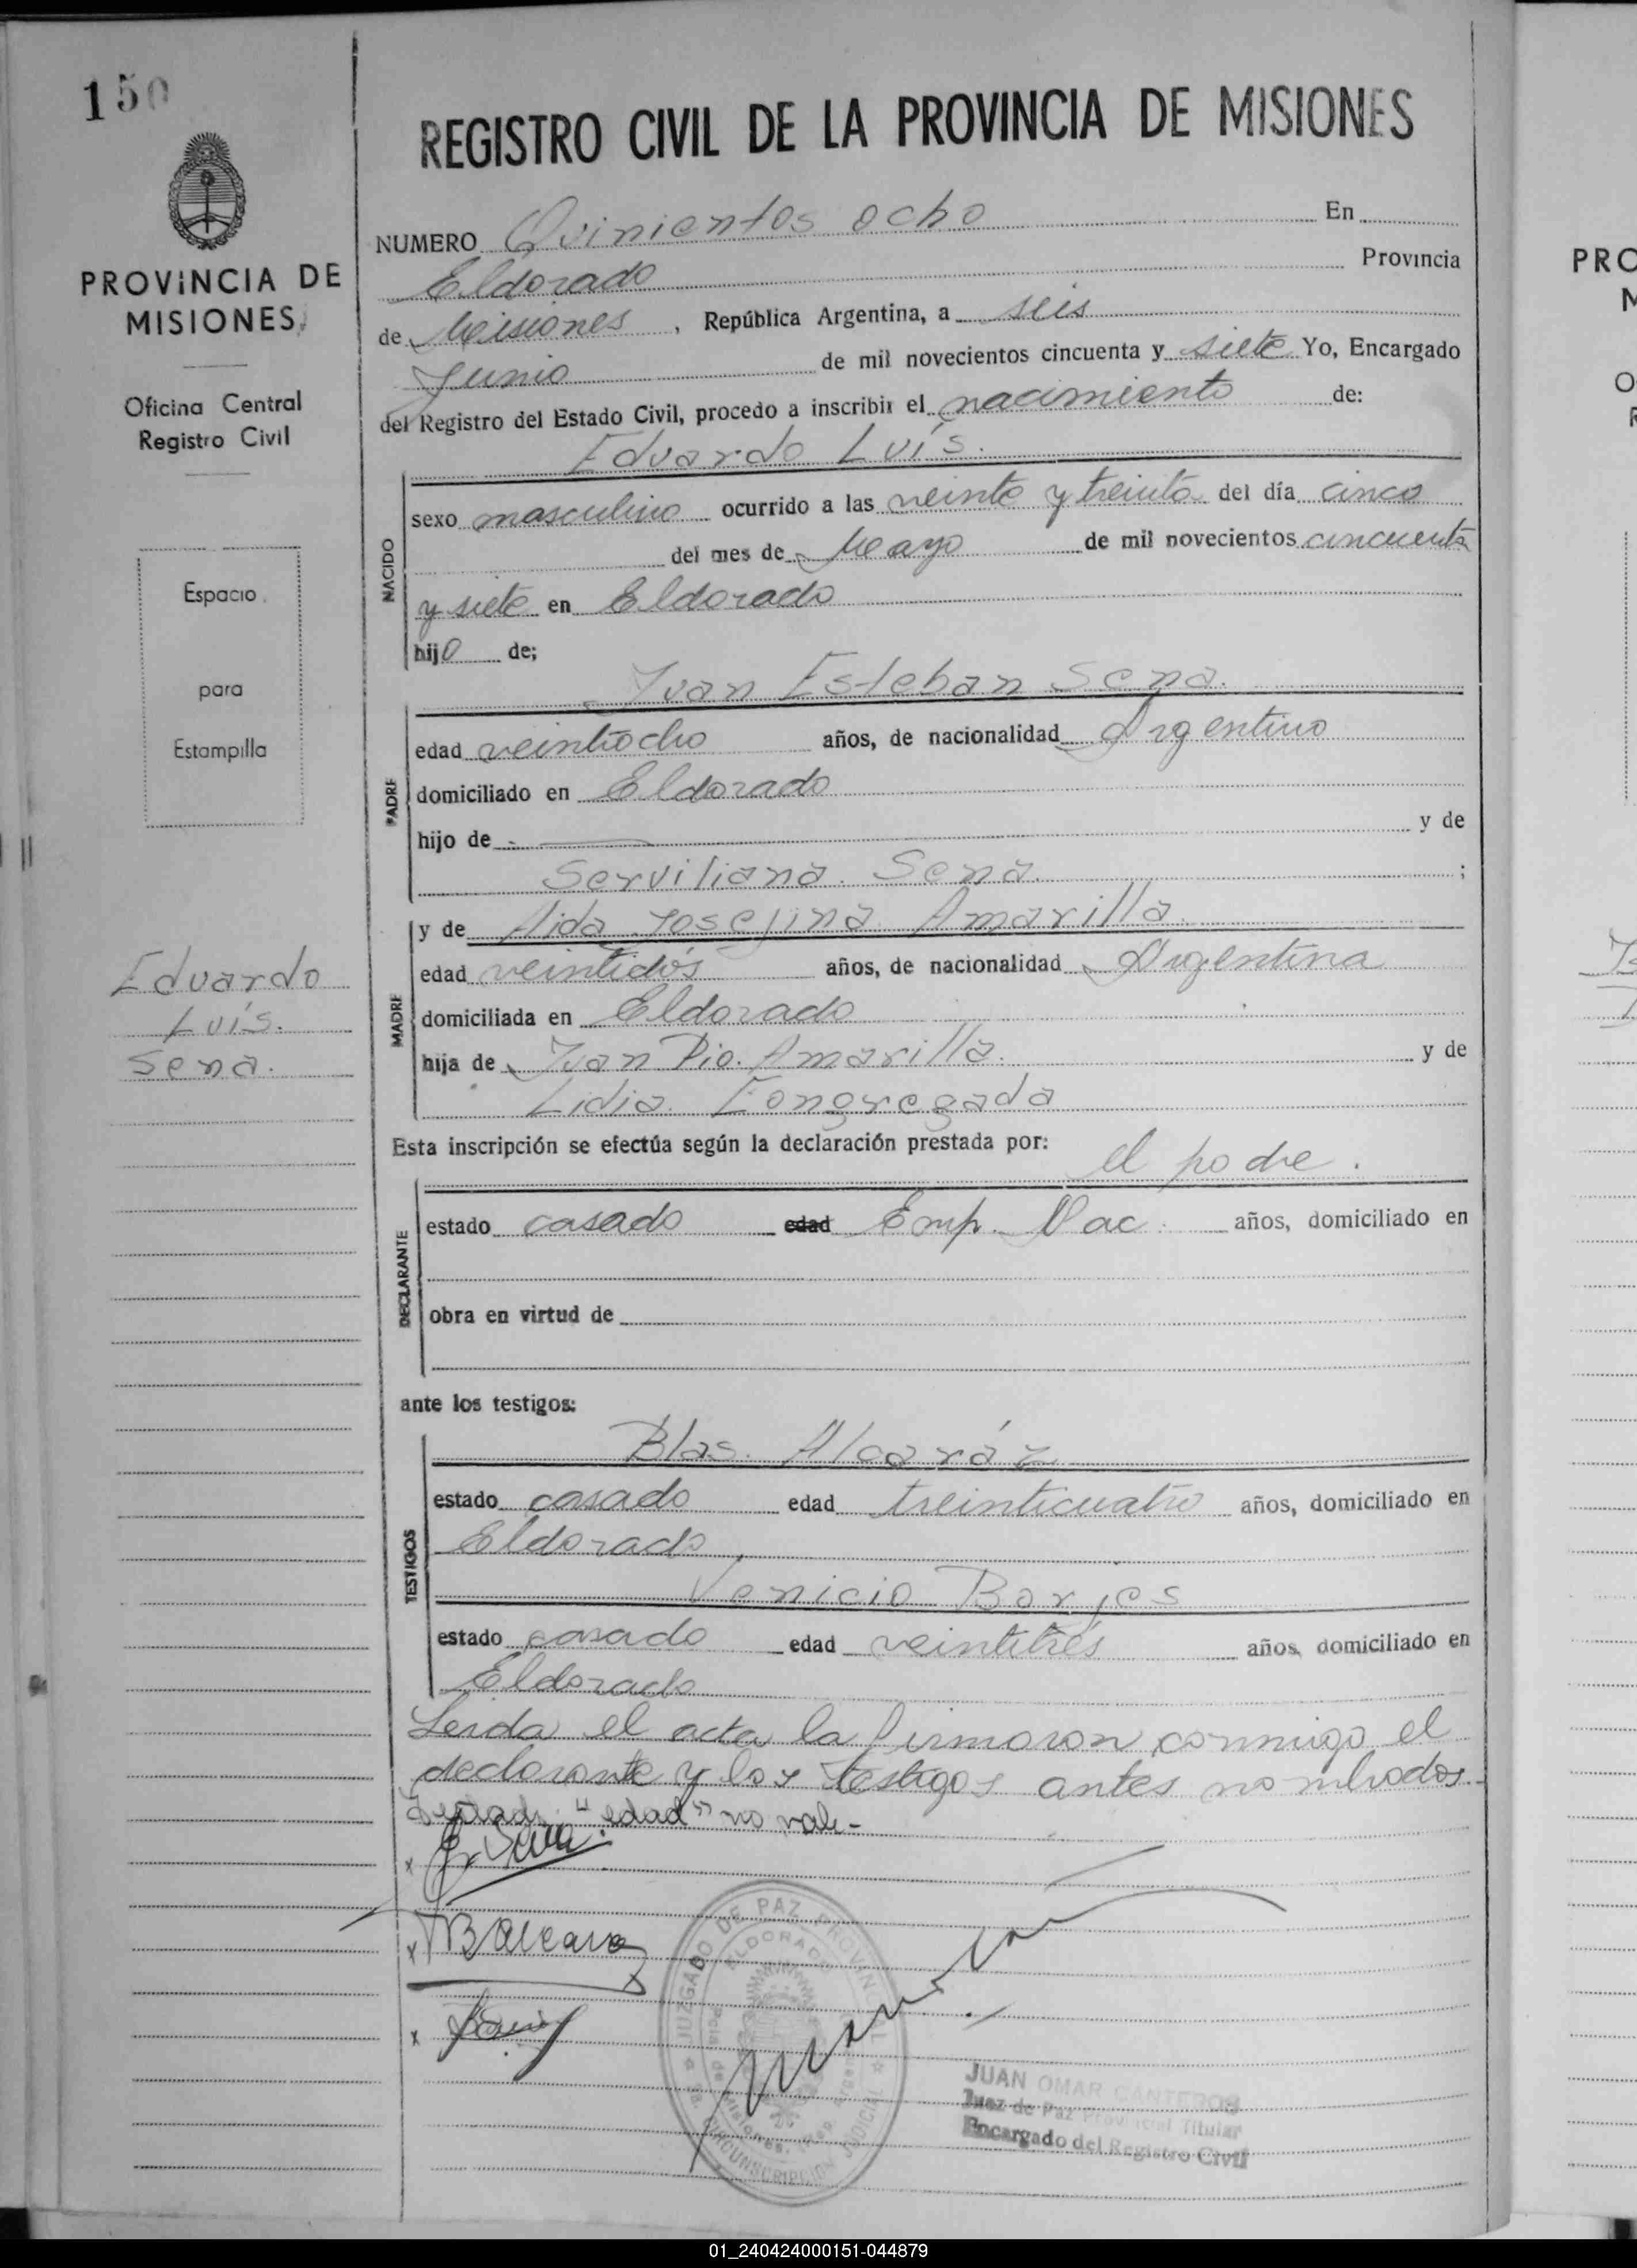 150
REGISTRO CIVIL DE LA PROVINCIA DE MISIONES
PROVINCIA DE
MISIONES
Oficina Central
Registro Civil
Espacio
para
Estampilla
Eduardo
Luís.
Sena.
NUMERO Quinientos ocho En
Eldorado Provincia
de Misiones, República Argentina, a seis
Junio de mil novecientos cincuenta y siete Yo, Encargado
del Registro del Estado Civil, procedo a inscribir el nacimiento de:
Eduardo Luís.
NACIDO
sexo masculino ocurrido a las veinte y treinta del día cinco
del mes de Mayo de mil novecientos cincuenta
y siete en Eldorado
hijo de;
Juan Esteban Sena.
PADRE
edad veintiocho años, de nacionalidad Argentino
domiciliado en Eldorado
hijo de - y de
Serviliana Sena. ;
MADRE
y de Aida Josefina Amarilla.
edad veintidós años, de nacionalidad Argentina
domiciliada en Eldorado
hija de Juan Pio Amarilla. y de
Lidia Eongregada
Esta inscripción se efectúa según la declaración prestada por:
el padre.
DECLARANTE
estado casado edad Emp. Nac. años, domiciliado en
obra en virtud de
ante los testigos:
TESTIGOS
Blas Alcaráz
estado casado edad treinticuatro años, domiciliado en
Eldorado
Venicio Borjes
estado casado edad veintitrés años, domiciliado en
Eldorado
Leida el acta la firmaron conmigo el
declarante y los testigos antes nombrados.-
"edad" no vale-
x
x BAlcaraz
x
JUZGADO DE PAZ PROVINCIAL
ELDORADO
Pcia. de Misiones. Rep. Argen
CIRCUNSCRIPCION JUDICIAL
JUAN OMAR CANTEROS
Juez de Paz Provincial Titular
Encargado del Registro Civil
PRO
M
O
R
01_240424000151-044879